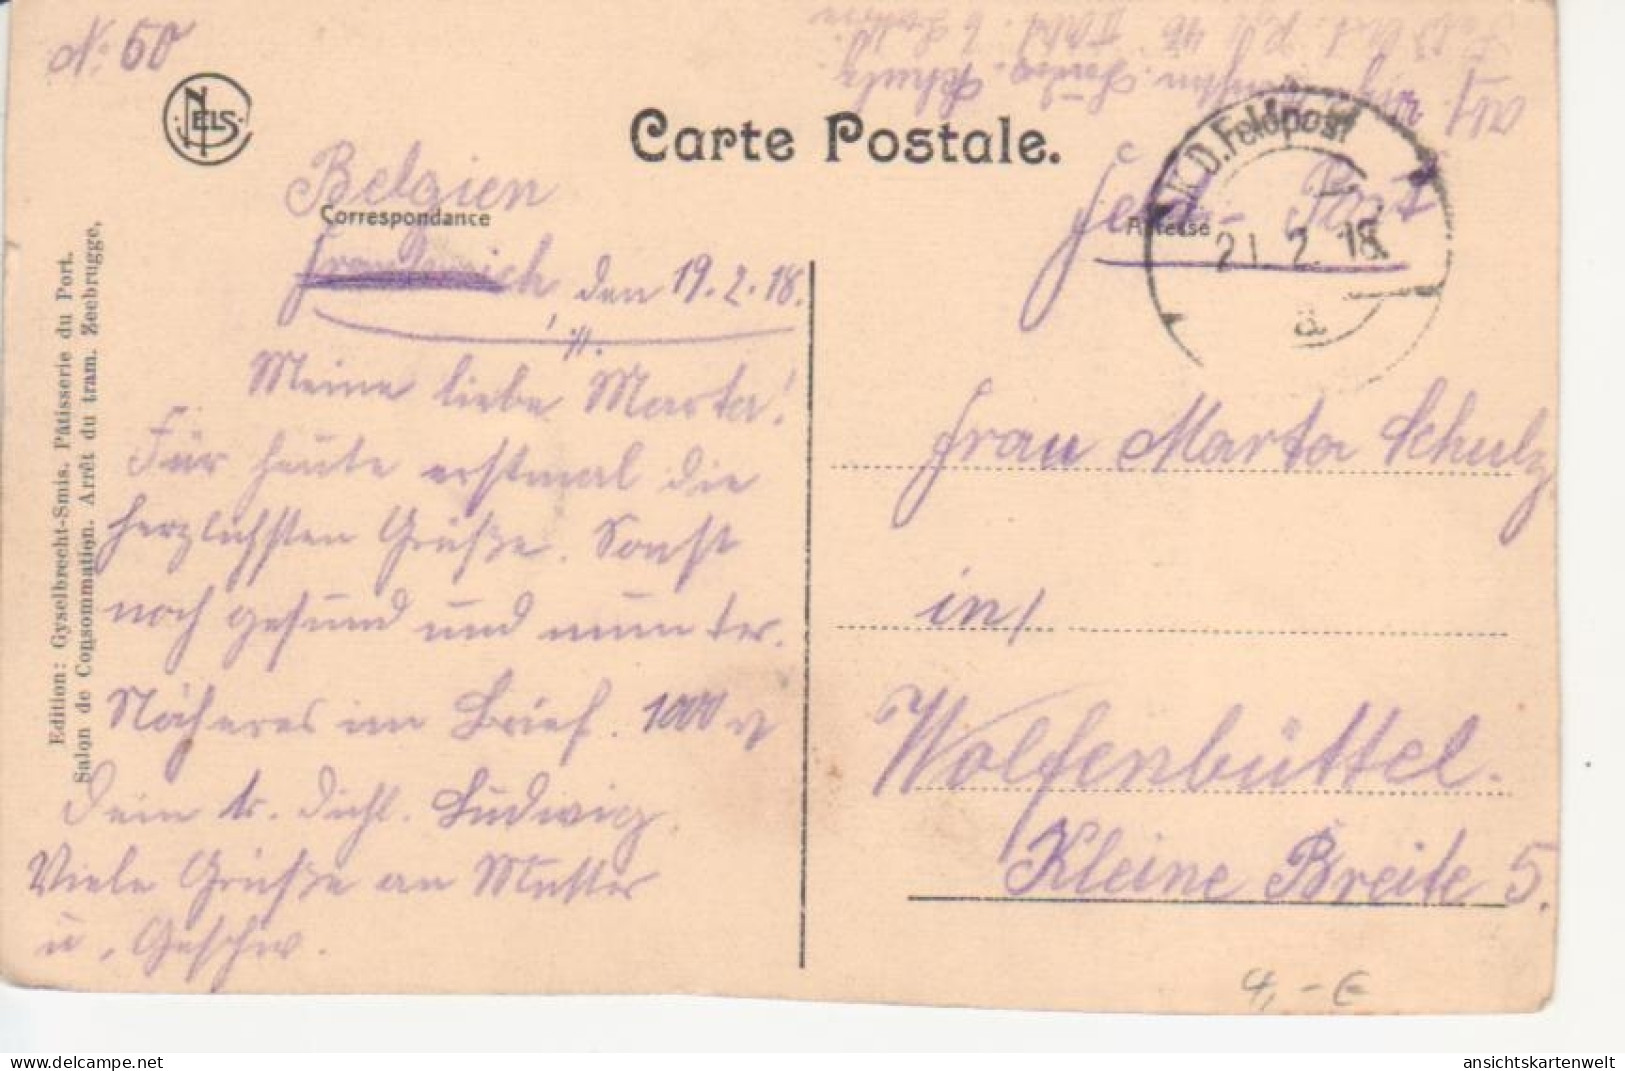 N. 50
NELS
Carte Postale.
Correspondance
Adresse
Belgien
Frankreich den 19.2.18.
Meine liebe Marta!
Für heute erstmal die
herzlichsten Grüße. Sonst
noch gesund und munter.
Näheres im Brief. 1000
Dein Dichl. Ludwig.
Viele Grüße an Mutter
u. Geschw.
Edition: Gyselbrecht-Smis. Pâtisserie du Port.
Salon de Consommation. Arrêt du tram. Zeebrugge,
Abs. Schulz
K.D. Feldpost
21.2.18.
a
Feld-Post
Frau Marta Schulz
in/
Wolfenbüttel.
Kleine Breite 5.
4,-€
ansichtskartenwelt